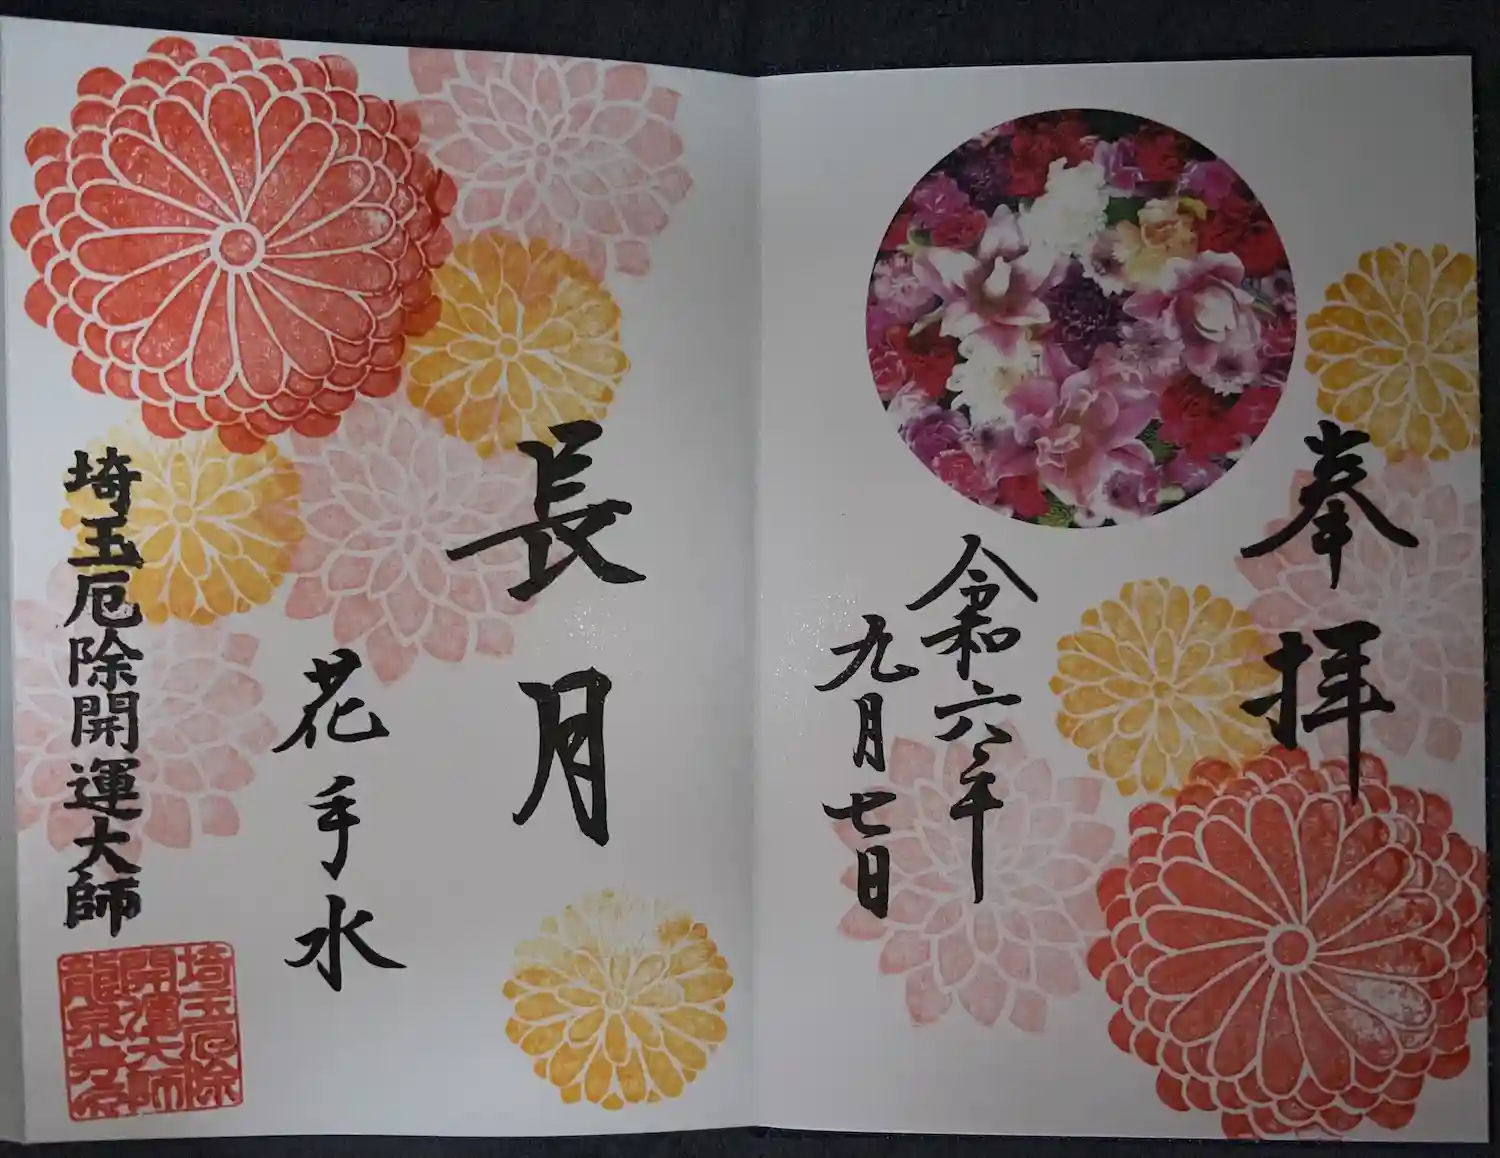 奉拝
令和六年
九月七日
長月
花手水
埼玉厄除開運大師
埼玉厄除
開運大師
龍泉寺